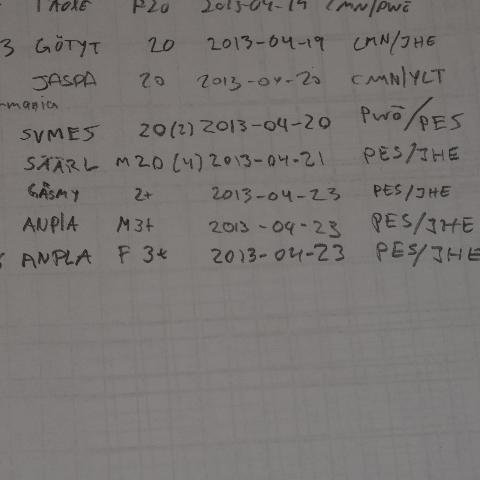 TAOXE F20 2013-04-19 CMN/PWÖ
3 GÖTYT 20 2013-04-19 CMN/JHE
JÄSPA 20 2013-04-20 CMN/YLT
mania
SVMES 20(2) 2013-04-20 PWÖ/PES
SÄÄRL M20(4) 2013-04-21 PES/JHE
GÄSMY 2+ 2013-04-23 PES/JHE
ANPLA M3+ 2013-04-23 PES/JHE
ANPLA F 3+ 2013-04-23 PES/JHE